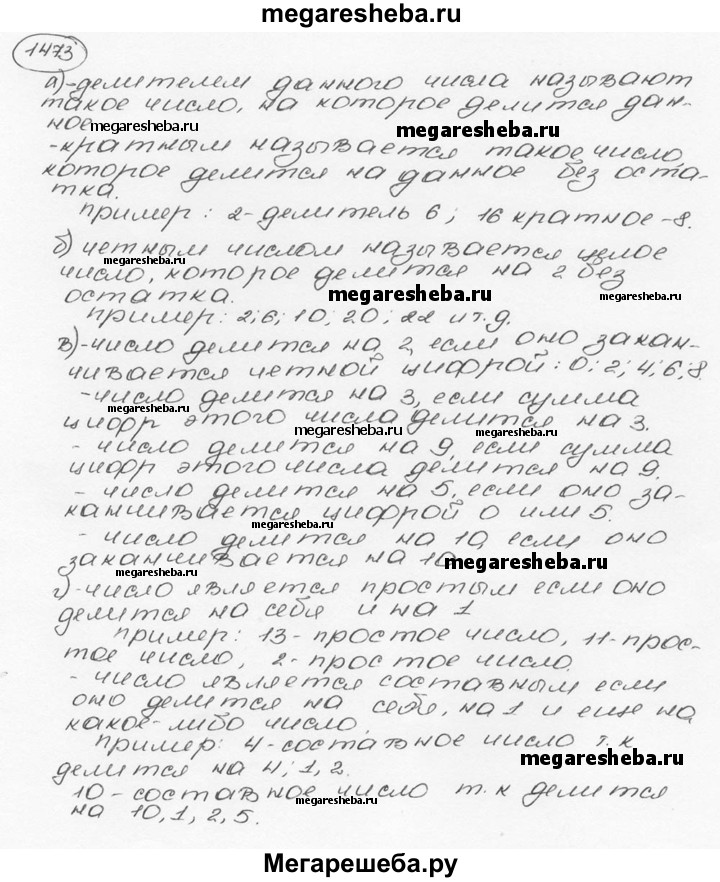 megaresheba.ru
1473
а)-делителем данного числа называют
такое число, на которое делится дан-
ное megaresheba.ru megaresheba.ru
-кратным называется такое число,
которое делится на данное без оста-
тка.
Пример: 2-делитель 6; 16 кратное-8.
б) четным числом называется целое
megaresheba.ru
число, которое делится на 2 без
остатка. megaresheba.ru megaresheba.ru
Пример: 2; 6; 10; 20; 22 и т.д.
в)-число делится на 2, если оно закан-
megaresheba.ru
чивается четной цифрой: 0; 2; 4; 6; 8.
-число делится на 3, если сумма
megaresheba.ru
цифр этого числа делится на 3.
megaresheba.ru megaresheba.ru
- число делится на 9, если сумма
цифр этого числа делится на 9.
- число делится на 5, если оно за-
канчивается цифрой 0 или 5.
megaresheba.ru
- число делится на 10, если оно
заканчивается на 10
megaresheba.ru megaresheba.ru
г)-число является простым если оно
делится на себя и на 1
Пример: 13- простое число, 11-прос-
тое число, 2-простое число.
- число является составным если
оно делится на себя, на 1 и еще на
megaresheba.ru
какое-либо число.
Пример: 4-составное число т.к
megaresheba.ru megaresheba.ru
делится на 4; 1, 2.
10-составное число т.к делится
megaresheba.ru
на 10, 1, 2, 5.
Мегарешеба.ру